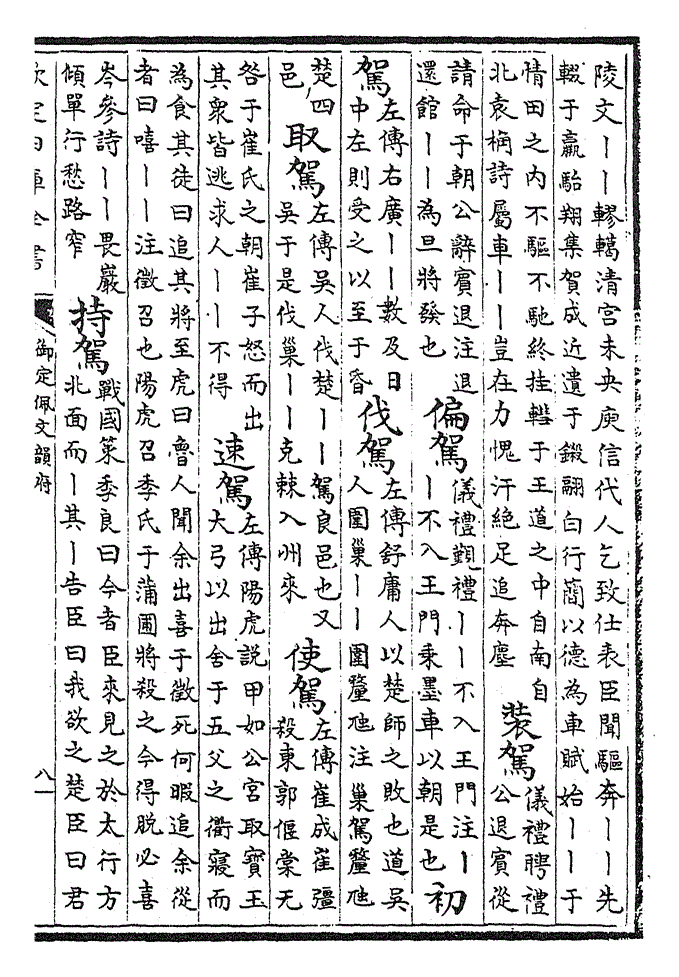 陵文丨丨轇轕清宮未央庾信代人乞致仕表臣聞驅奔丨丨先
輟于嬴駘翔集賀成近遺于鎩翮白行簡以德為車賦始丨丨于
情田之内不驅不馳終挂轊于王道之中自南自
北袁桷詩屬車丨丨豈在力愧汗絶足追奔塵
裝駕
儀禮聘禮
公退賓從
請命于朝公辭賓退注退
還館丨丨為旦將發也
偏駕
儀禮覲禮丨丨不入王門注丨
丨不入王門乘墨車以朝是也
初
駕
左傳右廣丨丨數及日
中左則受之以至于昏
伐駕
左傳舒庸人以楚師之敗也道吳
人圍巢丨丨圍釐虺注巢駕釐虺
楚四
邑
取駕
左傳吳人伐楚丨丨駕良邑也又
吳于是伐巢丨丨克棘入州來
使駕
左傳崔成崔彊
殺東郭偃棠无
咎于崔氏之朝崔子怒而出
其衆皆逃求人丨丨不得
速駕
左傳陽虎説甲如公宮取寶玉
大弓以出舍于五父之衢寢而
為食其徒曰追其將至虎曰魯人聞余出喜于徵死何暇追余從
者曰嘻丨丨注徵召也陽虎召季氏于蒲圃將殺之今得脱必喜
岑參詩丨丨畏巖
傾單行愁路窄
持駕
戰國策季良曰今者臣來見之於太行方
北面而丨其丨告臣曰我欲之楚臣曰君
欽定四庫全書
御定佩文韻府
八一